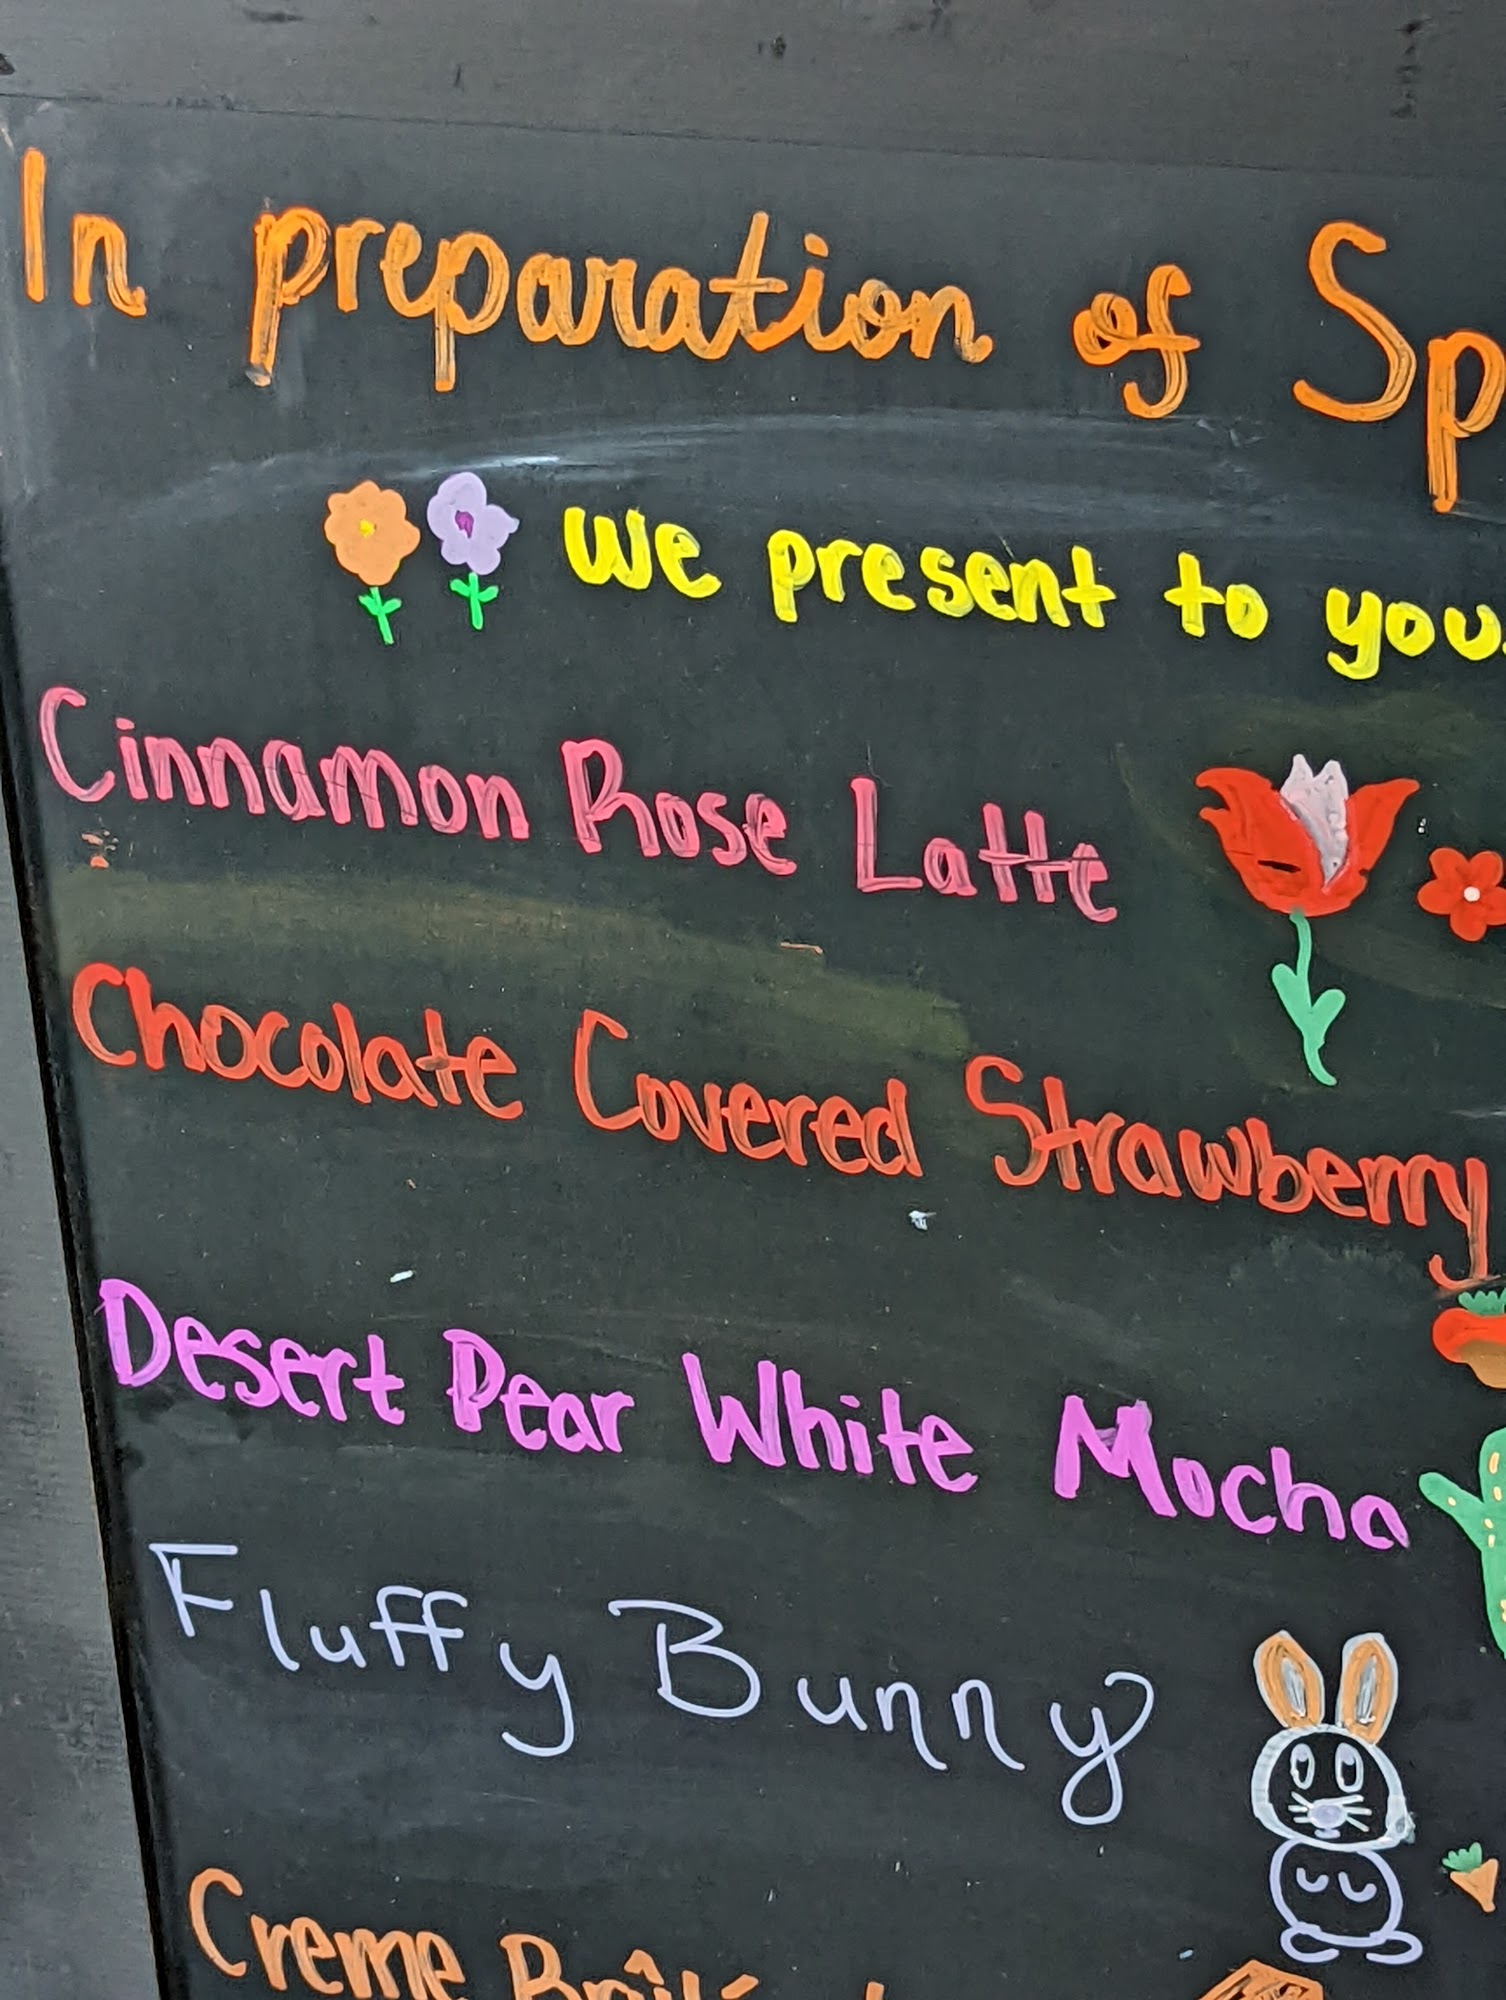 In preparation of Sp
We present to you.
Cinnamon Rose Latte
Chocolate Covered Strawberry
Desert Pear White Mocha
Fluffy Bunny
Creme